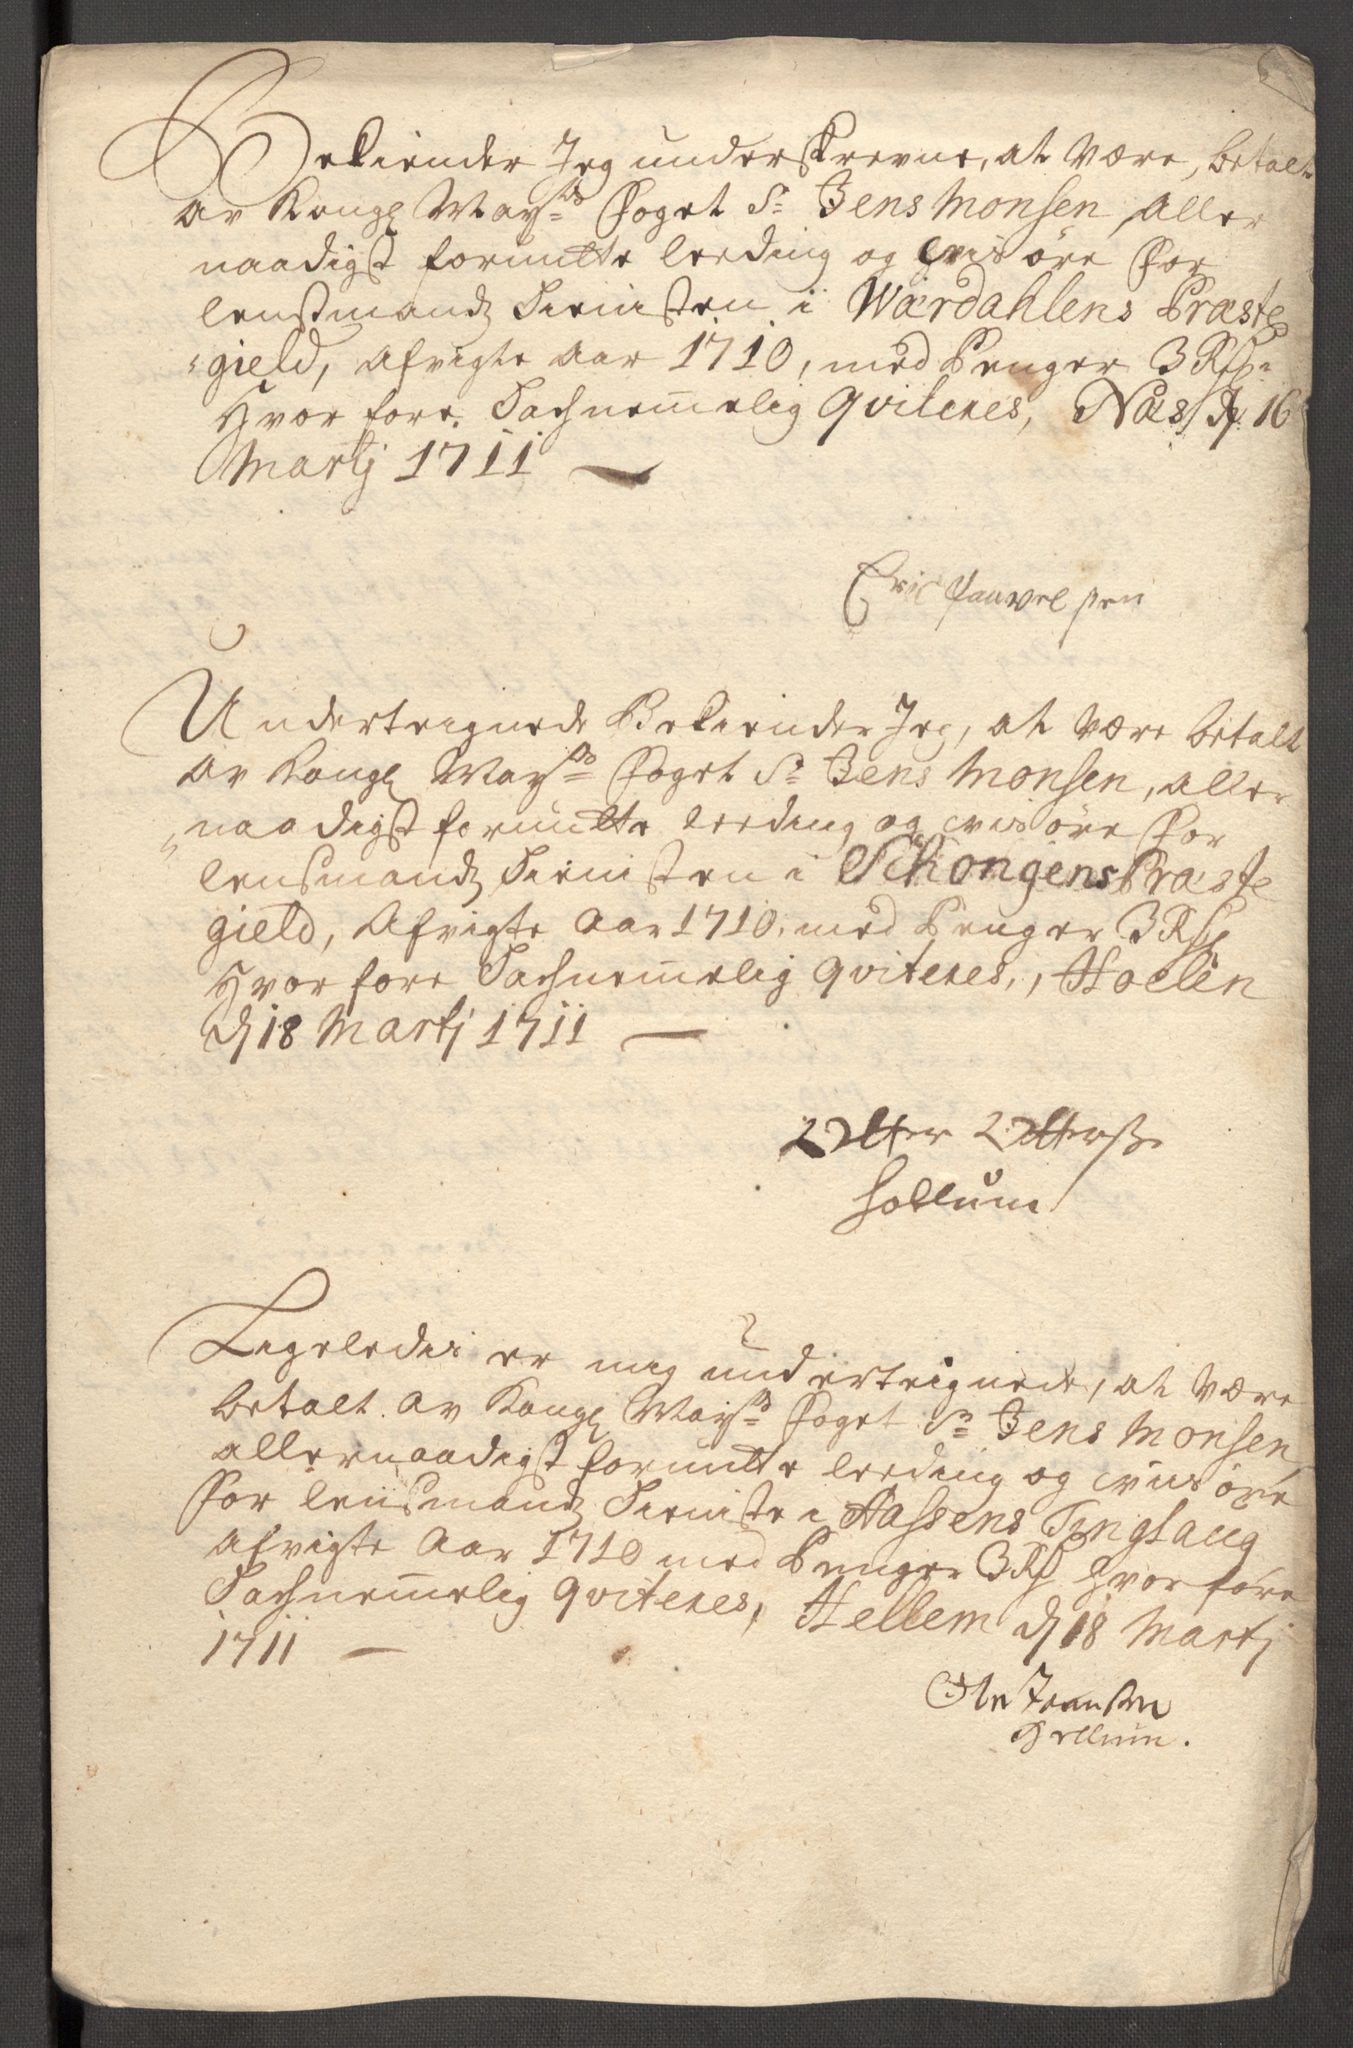 Bekiender Jeg underskrevne, at være, betalt
av Kongl May:ts Foget Sr Jens Monsen, aller
naadigst forundte leeding og visøre for
lensmandz Tienisten i Wærdahlens Præste
gield, afvigte aar 1710, med Penger 3 Rdr
Hvor fore Tachnemelig qviteres, Næs d 16
Martj 1711
Eric Pauvelsen
Undertegnede Bekiender Jeg, at være betalt
av Kongl May:ts Foget Sr Jens Monsen, aller
naadigst forundte leeding og visøre for
lensmandz Tienisten i Schongens Præste
gield, Afvigte Aar 1710, med Penger 3 Rd
Hvor fore Tachnemelig qviteres, Hoelen
d 18 Martj 1711
Hollum
Ligeledis er mig undertegnede, at være
betalt av Kongl May:ts Foget Sr Jens Monsen
allernaadigst forundte leeding og visøre
for lensmandz Tieniste i Hassens Tinglaug
afvigte Aar 1710 med Penger 3 Rd hvor fore
Tachnemelig qviteres, Hellem d 18 Martj
1711
Ole Jensen
Hellum.